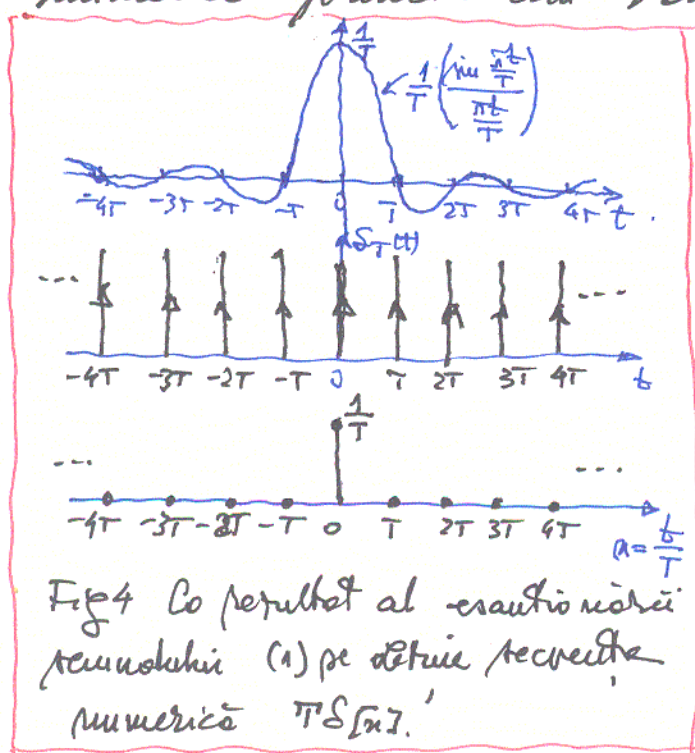 1/T
1/T (sin πt/T / πt/T)
-4T -3T -2T -T 0 T 2T 3T 4T t
δ_T(t)
... ...
-4T -3T -2T -T 0 T 2T 3T 4T t
1/T
... ...
-4T -3T -2T -T 0 T 2T 3T 4T
n = t/T
Fig 4 Ca rezultat al eșantionării
semnalului (1) se obține secvența
numerică Tδ[n].